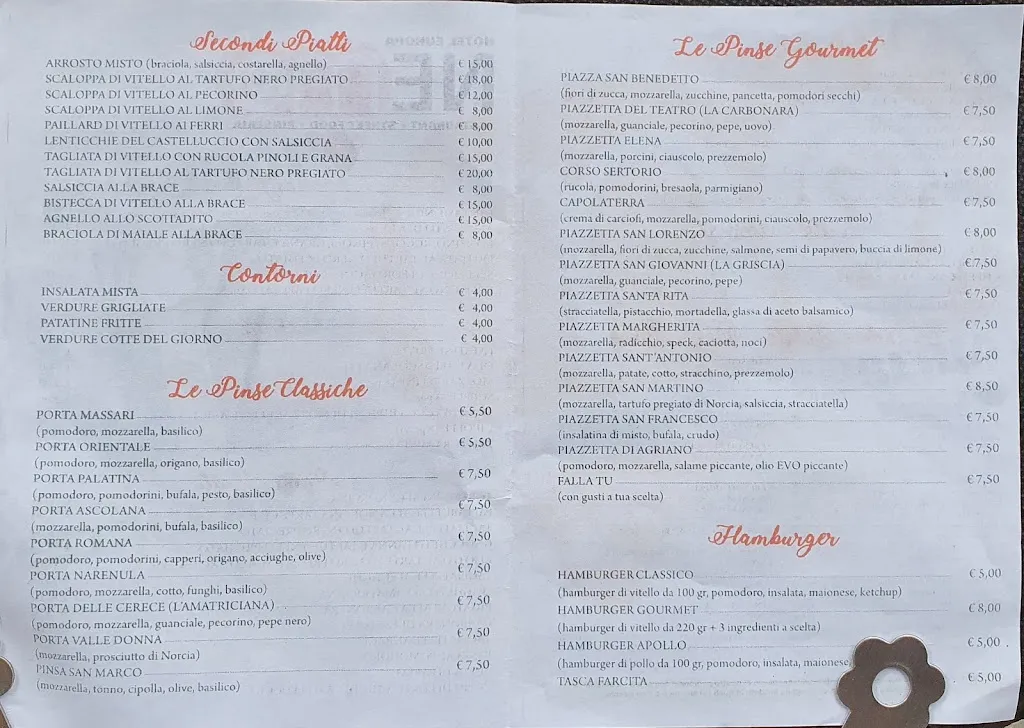 Secondi Piatti
ARROSTO MISTO (braciola, salsiccia, costarella, agnello) € 15,00
SCALOPPA DI VITELLO AL TARTUFO NERO PREGIATO € 18,00
SCALOPPA DI VITELLO AL PECORINO € 12,00
SCALOPPA DI VITELLO AL LIMONE € 8,00
PAILLARD DI VITELLO AI FERRI € 8,00
LENTICCHIE DEL CASTELLUCCIO CON SALSICCIA € 10,00
TAGLIATA DI VITELLO CON RUCOLA PINOLI E GRANA € 15,00
TAGLIATA DI VITELLO AL TARTUFO NERO PREGIATO € 20,00
SALSICCIA ALLA BRACE € 8,00
BISTECCA DI VITELLO ALLA BRACE € 15,00
AGNELLO ALLO SCOTTADITO € 15,00
BRACIOLA DI MAIALE ALLA BRACE € 8,00
Contorni
INSALATA MISTA € 4,00
VERDURE GRIGLIATE € 4,00
PATATINE FRITTE € 4,00
VERDURE COTTE DEL GIORNO € 4,00
Le Pinse Classiche
PORTA MASSARI € 5,50
(pomodoro, mozzarella, basilico)
PORTA ORIENTALE € 5,50
(pomodoro, mozzarella, origano, basilico)
PORTA PALATINA € 7,50
(pomodoro, pomodorini, bufala, pesto, basilico)
PORTA ASCOLANA € 7,50
(mozzarella, pomodorini, bufala, basilico)
PORTA ROMANA € 7,50
(pomodoro, pomodorini, capperi, origano, acciughe, olive)
PORTA NARENULA € 7,50
(pomodoro, mozzarella, cotto, funghi, basilico)
PORTA DELLE CERECE (L'AMATRICIANA) € 7,50
(pomodoro, mozzarella, guanciale, pecorino, pepe nero)
PORTA VALLE DONNA € 7,50
(mozzarella, prosciutto di Norcia)
PINSA SAN MARCO € 7,50
(mozzarella, tonno, cipolla, olive, basilico)
Le Pinse Gourmet
PIAZZA SAN BENEDETTO € 8,00
(fiori di zucca, mozzarella, zucchine, pancetta, pomodori secchi)
PIAZZETTA DEL TEATRO (LA CARBONARA) € 7,50
(mozzarella, guanciale, pecorino, pepe, uovo)
PIAZZETTA ELENA € 7,50
(mozzarella, porcini, ciauscolo, prezzemolo)
CORSO SERTORIO € 8,00
(rucola, pomodorini, bresaola, parmigiano)
CAPOLATERRA € 7,50
(crema di carciofi, mozzarella, pomodorini, ciauscolo, prezzemolo)
PIAZZETTA SAN LORENZO € 8,00
(mozzarella, fiori di zucca, zucchine, salmone, semi di papavero, buccia di limone)
PIAZZETTA SAN GIOVANNI (LA GRISCIA) € 7,50
(mozzarella, guanciale, pecorino, pepe)
PIAZZETTA SANTA RITA € 7,50
(stracciatella, pistacchio, mortadella, glassa di aceto balsamico)
PIAZZETTA MARGHERITA € 7,50
(mozzarella, radicchio, speck, caciotta, noci)
PIAZZETTA SANT'ANTONIO € 7,50
(mozzarella, patate, cotto, stracchino, prezzemolo)
PIAZZETTA SAN MARTINO € 8,50
(mozzarella, tartufo pregiato di Norcia, salsiccia, stracciatella)
PIAZZETTA SAN FRANCESCO € 7,50
(insalatina di misto, bufala, crudo)
PIAZZETTA DI AGRIANO € 7,50
(pomodoro, mozzarella, salame piccante, olio EVO piccante)
FALLA TU € 7,50
(con gusti a tua scelta)
Hamburger
HAMBURGER CLASSICO € 5,00
(hamburger di vitello da 100 gr, pomodoro, insalata, maionese, ketchup)
HAMBURGER GOURMET € 8,00
(hamburger di vitello da 220 gr + 3 ingredienti a scelta)
HAMBURGER APOLLO € 5,00
(hamburger di pollo da 100 gr, pomodoro, insalata, maionese,
TASCA FARCITA € 5,00